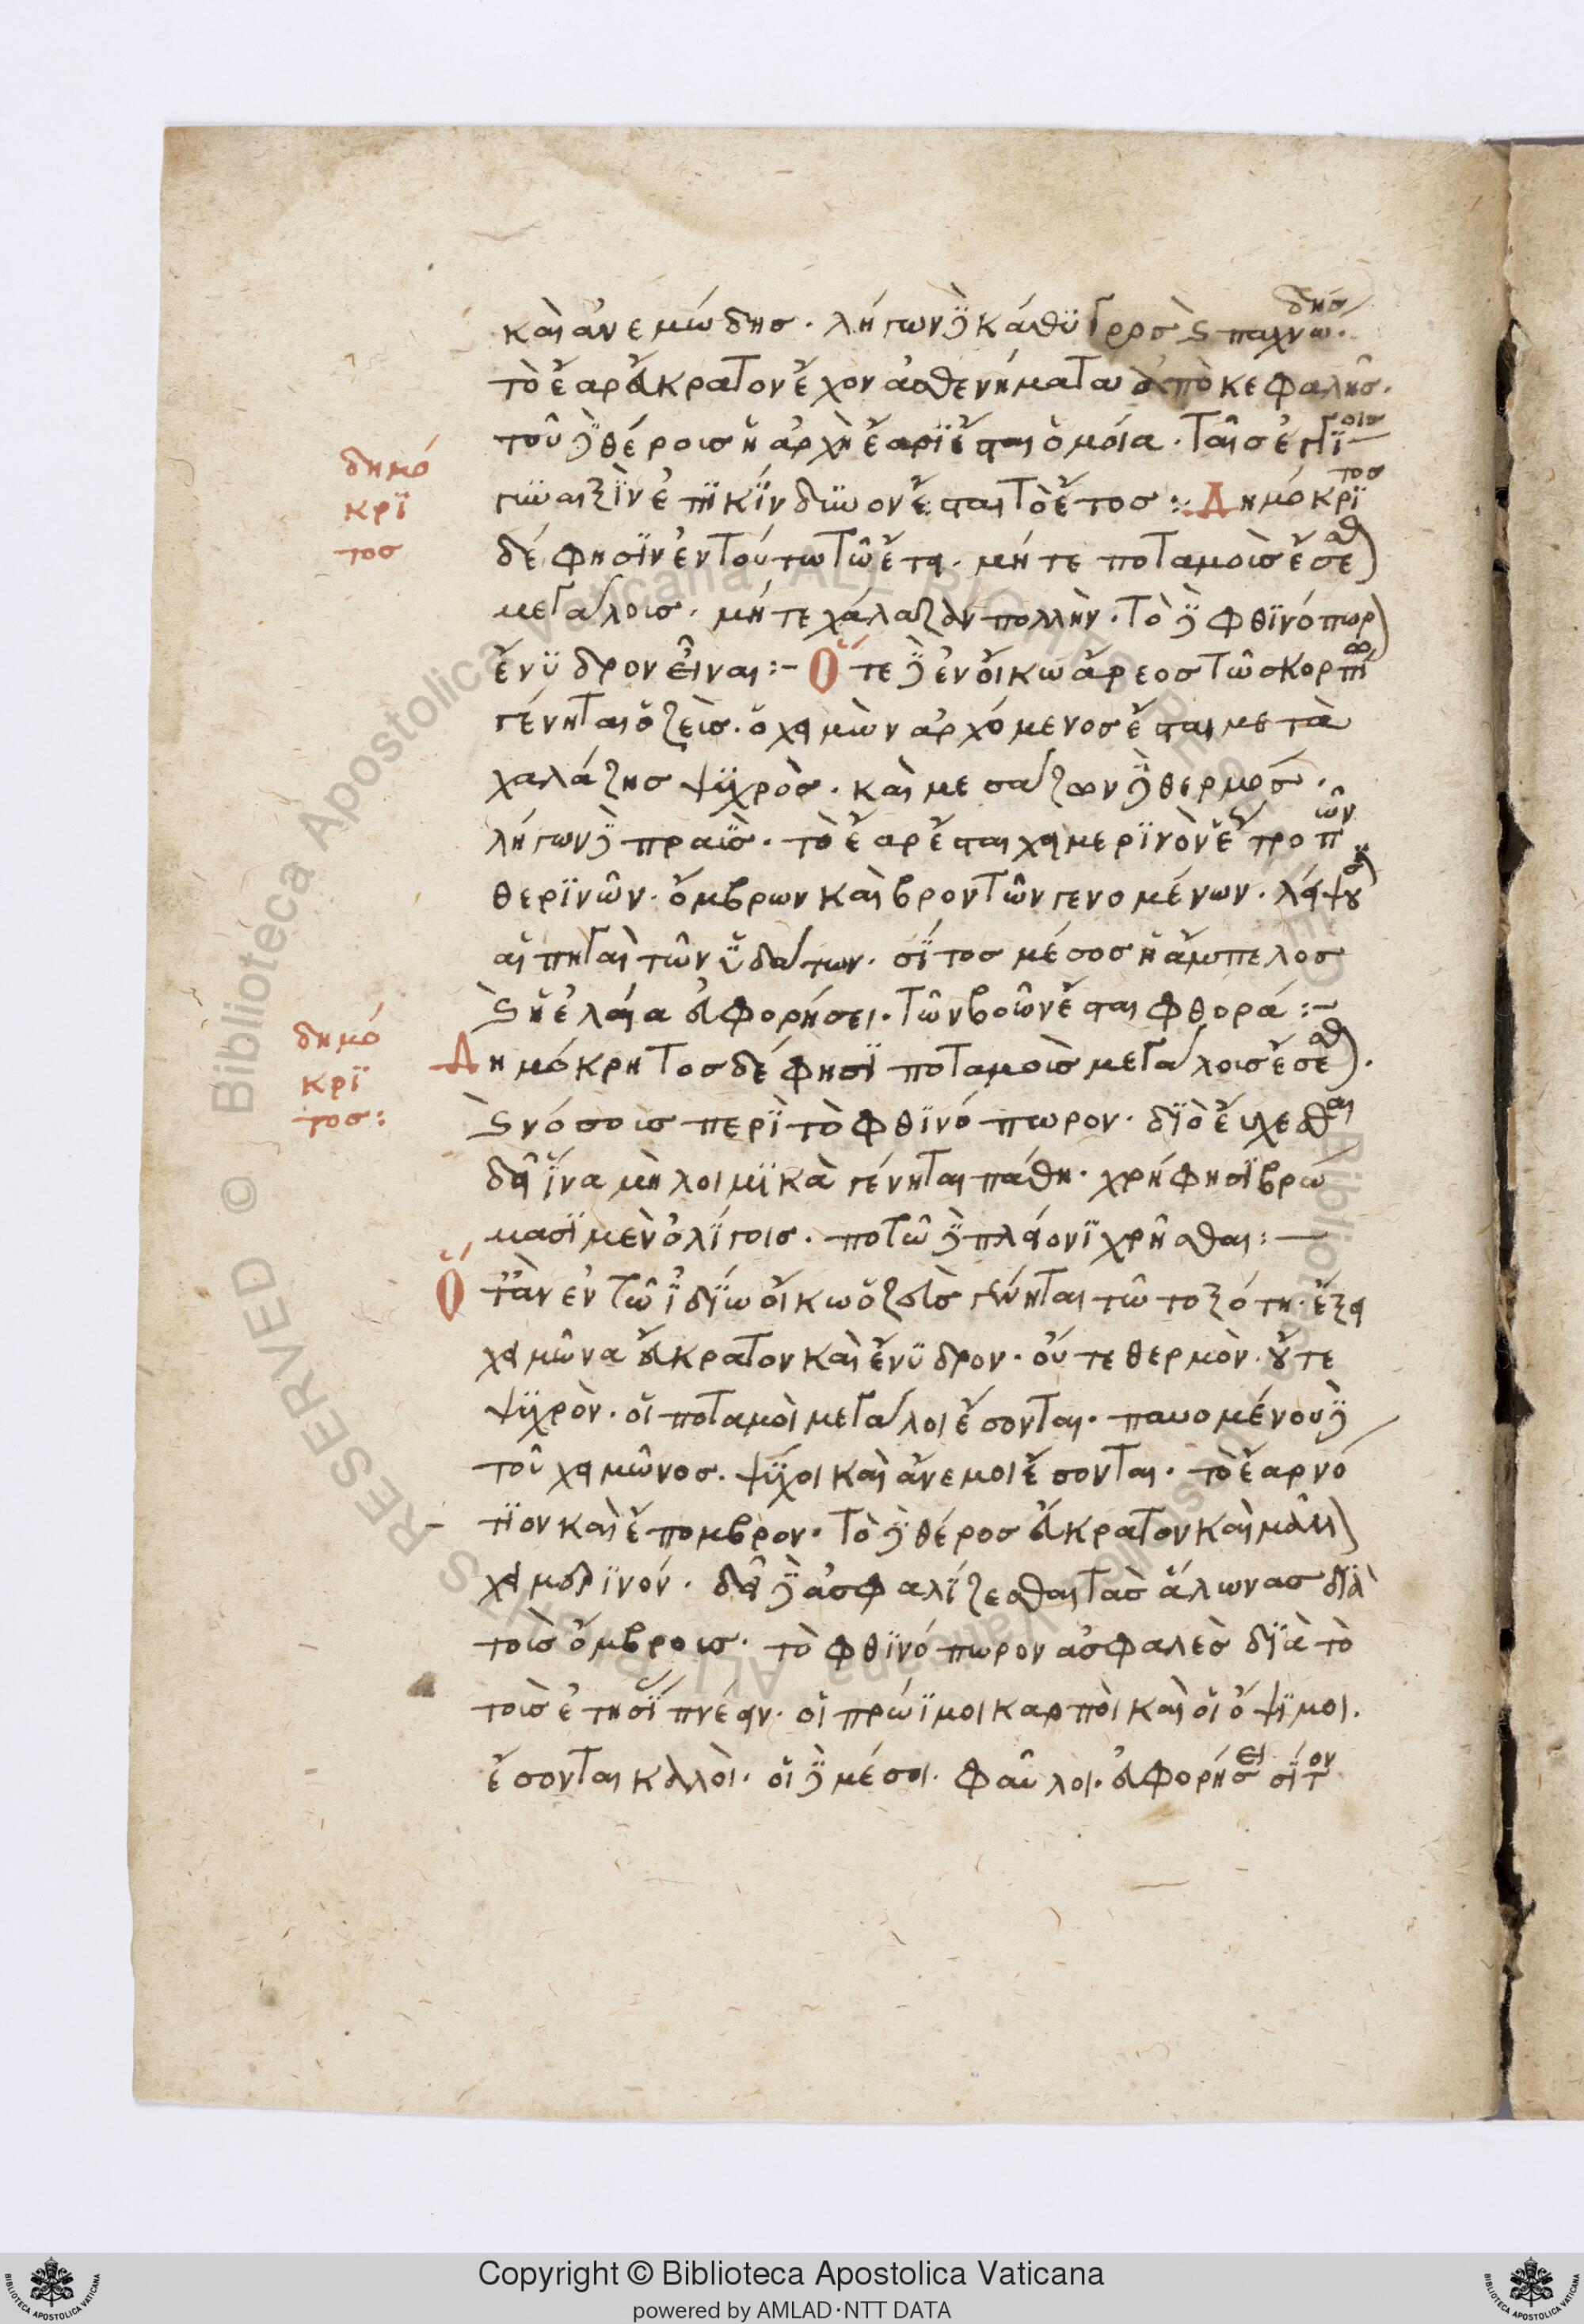 καὶ ἀνεμώδησ· λήγων δὲ κάθϋγροσ καὶ παχνώδησ·
τὸ ἔαρ ἄκρατον ἔχον ἀσθενήματα ἀπὸ κεφαλῆσ·
τοῦ δὲ θέροισ ἡ ἀρχὴ ἔαρϊ ἔσται ὁμοία· ταῖσ ἐγγΐοισ
γϋναιξῒν ἐπϊκΐνδϋνον ἔσται τὸ ἔτοσ :· Δημόκρϊτοσ
δέ φησϊν ἐν τούτω τῶ ἔτει· μήτε ποταμοὶσ ἔσεσθαι
μεγάλοισ· μήτε χάλαζαν πολλὴν· τὸ δὲ φθϊνόπωρον
ἔνϋδρον εἶναι :- Ὅτε δὲ ἐν οἴκω ἄρεοσ τῶ σκορπΐω
γένηται ὁ ζεὶσ· ὁ χειμὼν ἀρχόμενοσ ἔσται μετὰ
χαλάζησ ψϋχρὸσ· καὶ μεσάζων δὲ θερμόσ·
λήγων δὲ πραῢσ· τὸ ἔαρ ἔσται χειμερϊνὸν ἕωσ τροπῶν
θερϊνῶν· ὄμβρων καὶ βροντῶν γενομένων· λείψουσι
αἱ πηγαὶ τῶν ὑδάτων· σΐτοσ μέσοσ ἡ ἄμπελοσ
καὶ ἡ ἐλαία ἀφορήσει· τῶν βοῶν ἔσται φθορά :-
Δημόκρητοσ δέ φησϊ ποταμοὶσ μεγάλοισ ἔσεσθαι·
καὶ νόσοισ περϊ τὸ φθϊνόπωρον· δϊὸ εὔχεσθαι
δεῖ ἵνα μὴ λοιμϊκὰ γένηται πάθη· χρή φησϊ βρώ
μασϊ μὲν ὀλΐγοισ· ποτῶ δὲ πλείονϊ χρῆσθαι :—
Ὅταν ἐν τῶ ἰδΐω οἴκω ὁ ζεὶσ γένηται τῶ τοξότη· ἕξει
χειμῶνα ἄκρατον καὶ ἔνϋδρον· οὔτε θερμὸν· οὔτε
ψϋχρὸν· οἱ ποταμοὶ μεγάλοι ἔσονται· παυομένου δὲ
τοῦ χειμῶνοσ· ψΰχοι καὶ ἄνεμοι ἔσονται· τὸ ἔαρ νό
τϊον καὶ ἔπομβρον· τὸ δὲ θέροσ ἄκρατον καὶ μᾶλλον
χειμερϊνόν· δεῖ δὲ ἀσφαλΐζεσθαι τὰσ ἅλωνασ δϊὰ
τοὶσ ὄμβροισ· τὸ φθϊνόπωρον ἀσφαλὲσ δϊὰ τὸ
τοὶσ ἐτησΐ πνέειν· οἱ πρώϊμοι καρποὶ καὶ οἱ ὄψϊμοι·
ἔσονται καλλοὶ· οἱ δὲ μέσοι· φαῦλοι· ἀφορήσει σΐτον
δημό
κρϊ
τοσ
δημό
κρϊ
τοσ:
Copyright © Biblioteca Apostolica Vaticana
powered by AMLAD·NTT DATA